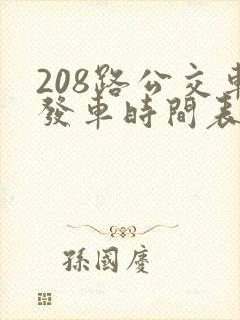 208路公交車
發車時間表
孫國慶